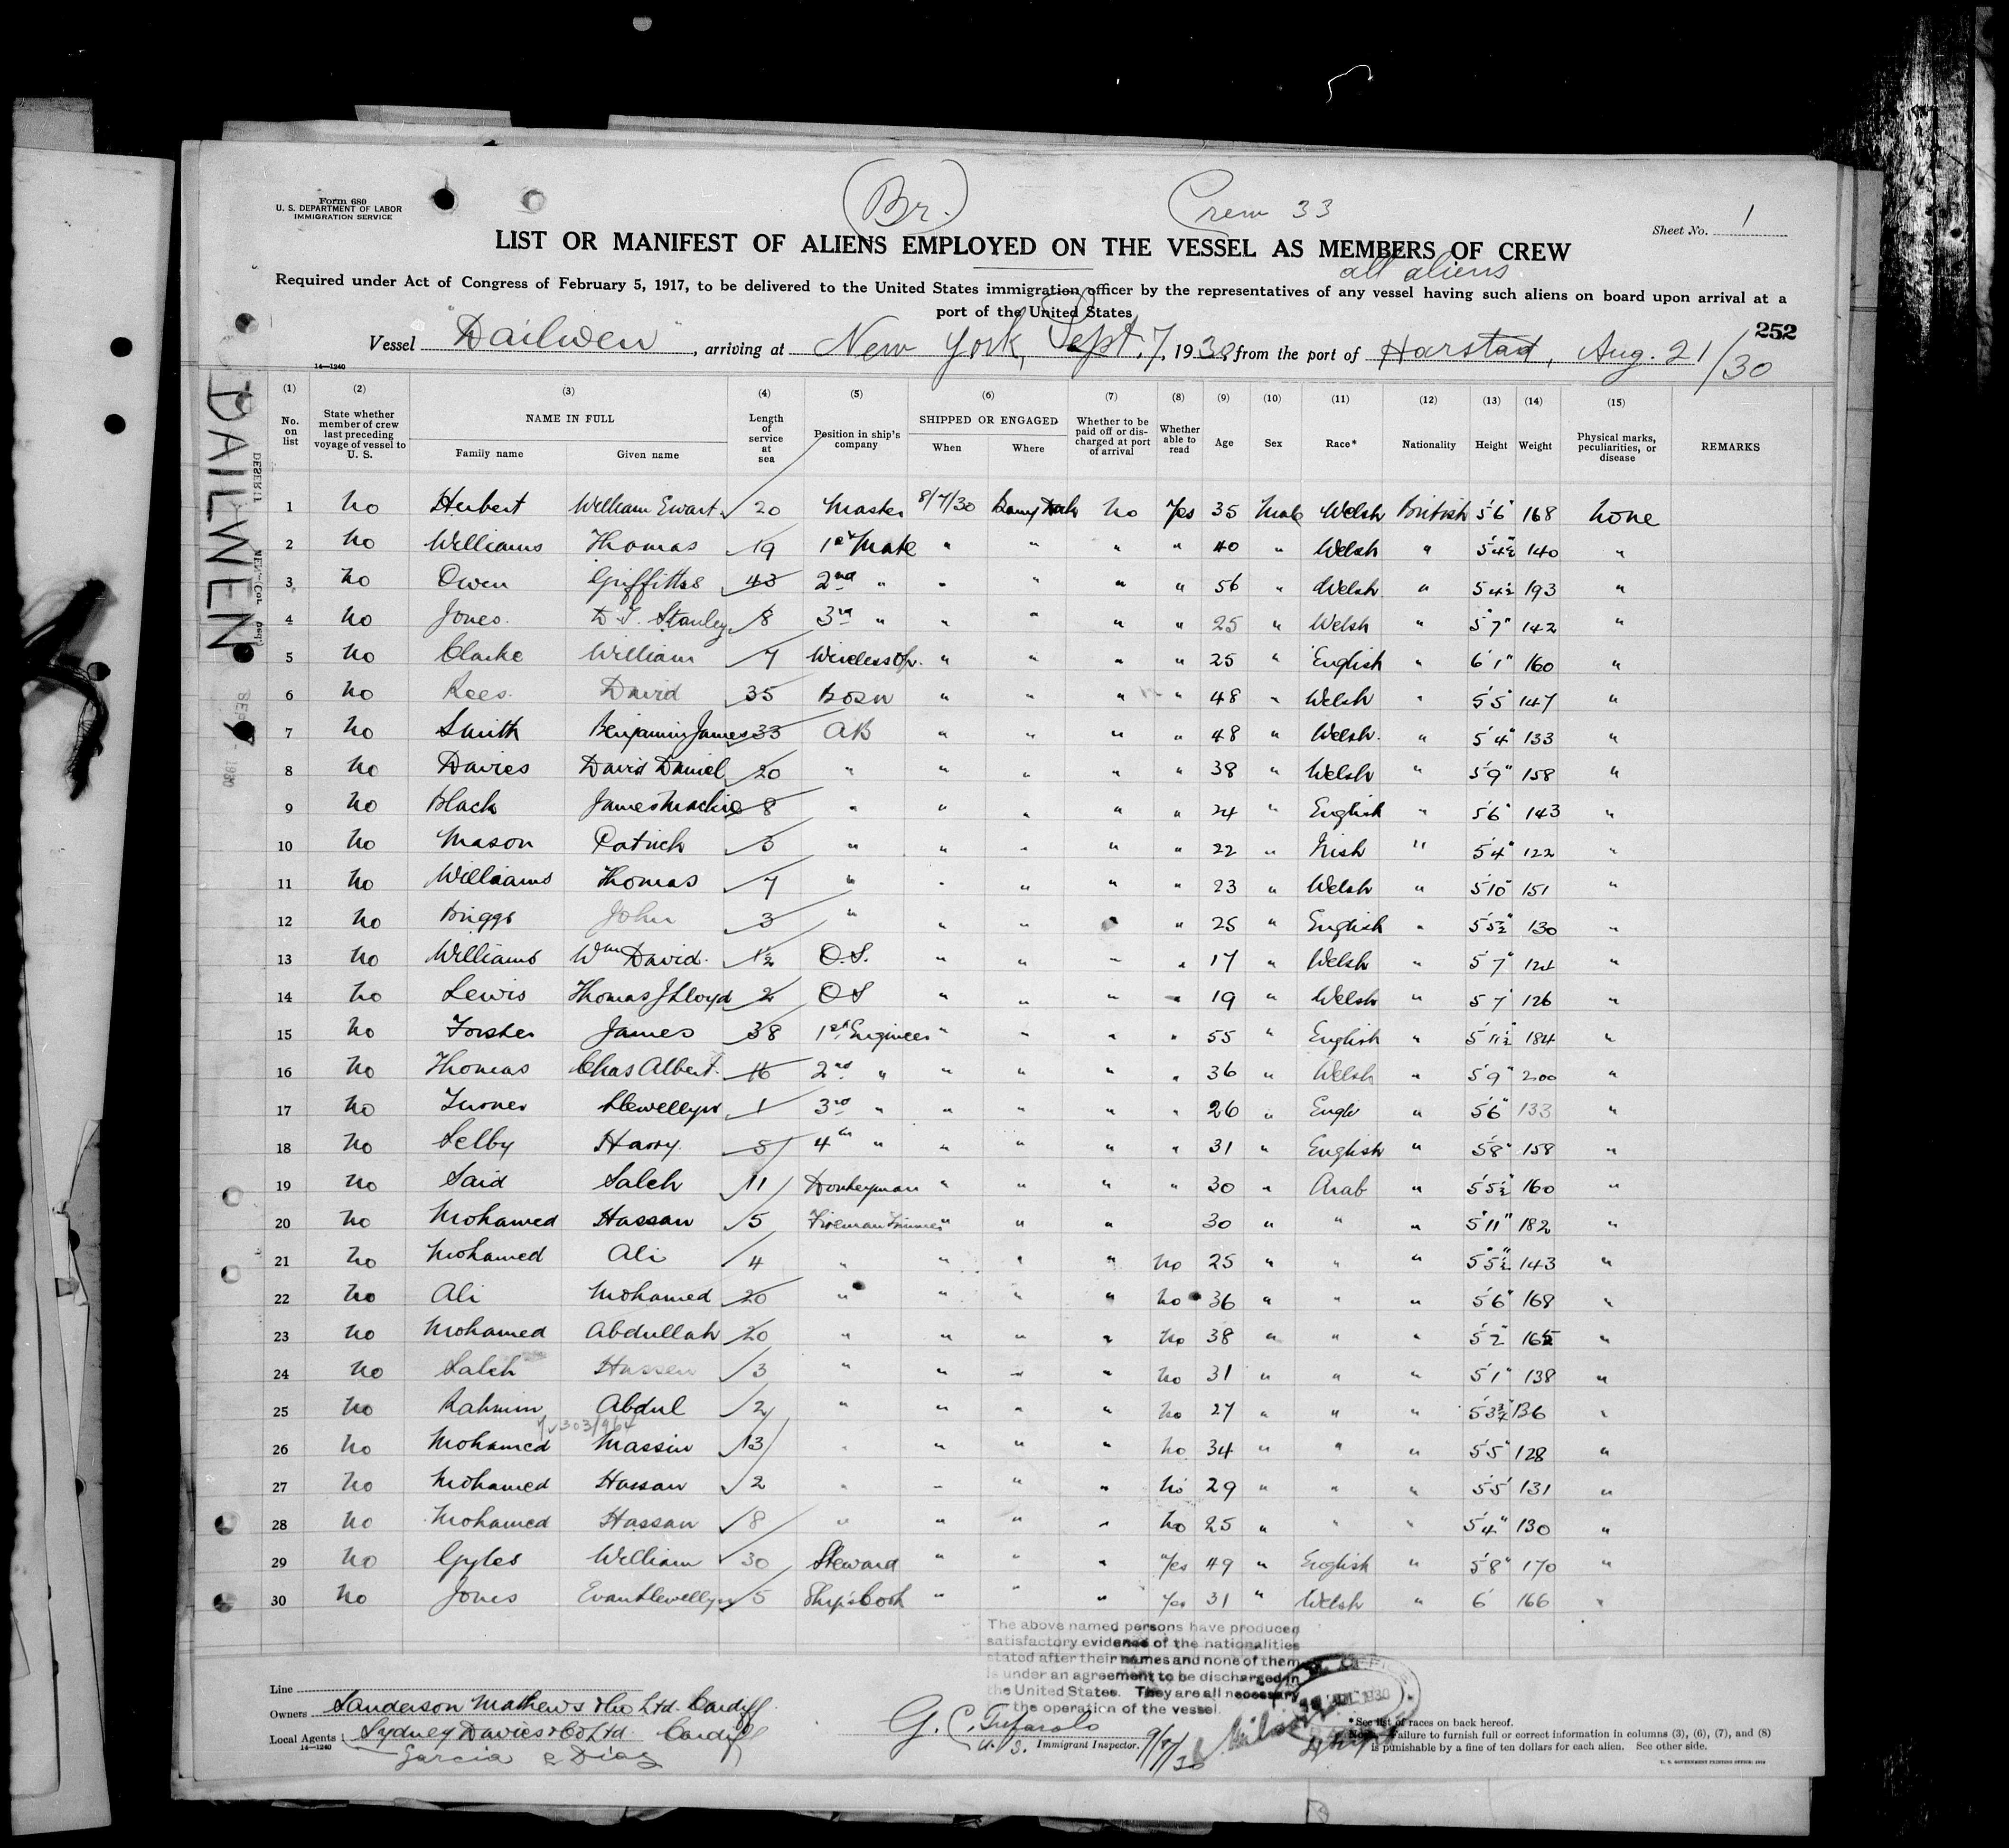 Form 680
U. S. DEPARTMENT OF LABOR
IMMIGRATION SERVICE
(Br.)
Crew 33
Sheet No. 1
LIST OR MANIFEST OF ALIENS EMPLOYED ON THE VESSEL AS MEMBERS OF CREW
all aliens
Required under Act of Congress of February 5, 1917, to be delivered to the United States immigration officer by the representatives of any vessel having such aliens on board upon arrival at a
port of the United States
252
Vessel "Dailwen", arriving at New York, Sept. 7, 1930 from the port of Harstad, Aug. 21/30
14—1240
DAILWEN
(1) (2) (3) (4) (5) (6) (7) (8) (9) (10) (11) (12) (13) (14) (15)
No. on list
State whether member of crew last preceding voyage of vessel to U. S.
NAME IN FULL
Family name
Given name
Length of service at sea
Position in ship's company
SHIPPED OR ENGAGED
When
Where
Whether to be paid off or discharged at port of arrival
Whether able to read
Age
Sex
Race*
Nationality
Height
Weight
Physical marks, peculiarities, or disease
REMARKS
1 No Herbert William Ewart 20 Master 8/7/30 Barry Dock No Yes 35 Male Welsh British 5'6" 168 None
2 No Williams Thomas 19 1st Mate " " " " 40 " Welsh " 5'4½" 140 "
3 No Owen Griffiths 43 2nd " " " " " 56 " Welsh " 5 4½ 193 "
4 No Jones D. T. Stanley 8 3rd " " " " " 25 " Welsh " 5'7" 142 "
5 No Clarke William 7 Wireless Op. " " " " 25 " English " 6'1" 160 "
6 No Rees David 35 Bosn " " " " 48 " Welsh " 5'5" 147 "
7 No Smith Benjamin James 33 AB " " " " 48 " Welsh " 5'4" 133 "
8 No Davies David Daniel 20 " " " " " 38 " Welsh " 5'9" 158 "
9 No Black James Mackie 8 " " " " " 24 " English " 5'6" 143 "
10 No Mason Patrick 3 " " " " " 22 " Irish " 5'4" 122 "
11 No Williams Thomas 7 " " " " " 23 " Welsh " 5'10" 151 "
12 No Briggs John 3 " " " " " 25 " English " 5'5½" 130 "
13 No Williams Wm David 1½ O.S. " " " " 17 " Welsh " 5'7" 124 "
14 No Lewis Thomas J Lloyd 2 OS " " " " 19 " Welsh " 5'7 126 "
15 No Forster James 38 1st Engineer " " " " 55 " English " 5'11½" 184 "
16 No Thomas Chas Albert 16 2nd " " " " " 36 " Welsh " 5'9" 200 "
17 No Turner Llewellyn 1 3rd " " " " " 26 " Engl " 5'6" 133 "
18 No Selby Harry 5 4th " " " " " 31 " English " 5'8" 158 "
19 No Said Saleh 11 Donkeyman " " " " 30 " Arab " 5'5½" 160 "
20 No Mohamed Hassan 5 Fireman Trimmer " " " 30 " " " 5'11" 182 "
21 No Mohamed Ali 4 " " " " No 25 " " " 5'5½" 143 "
22 No Ali Mohamed 20 " " " " No 36 " " " 5'6" 168 "
23 No Mohamed Abdullah 20 " " " " No 38 " " " 5'2" 165 "
24 No Saleh Hassen 3 " " " " No 31 " " " 5'1" 138 "
25 No Rahmin Abdul 2 " " " " No 27 " " " 5'3¾" 136 "
303/964
26 No Mohamed Massin 13 " " " " No 34 " " " 5'5" 128 "
27 No Mohamed Hassan 2 " " " " No 29 " " " 5'5" 131 "
28 No Mohamed Hassan 8 " " " " No 25 " " " 5'4" 130 "
29 No Gyles William 30 Steward " " " Yes 49 " English " 5'8" 170 "
30 No Jones Evan Llewellyn 5 Ship's Cook " " " Yes 31 " Welsh " 6' 166 "
The above named persons have produced
satisfactory evidence of the nationalities
stated after their names and none of them
is under an agreement to be discharged in
the United States. They are all necessary
for the operation of the vessel.
Line
Owners Sanderson Mathews & Co Ltd. Cardiff
Local Agents Sydney Davies & Co Ltd. Cardiff
14—1240
Garcia & Diaz
U. S. Immigrant Inspector. 9/7/30
*See list of races on back hereof.
Note.—Failure to furnish full or correct information in columns (3), (6), (7), and (8)
is punishable by a fine of ten dollars for each alien. See other side.